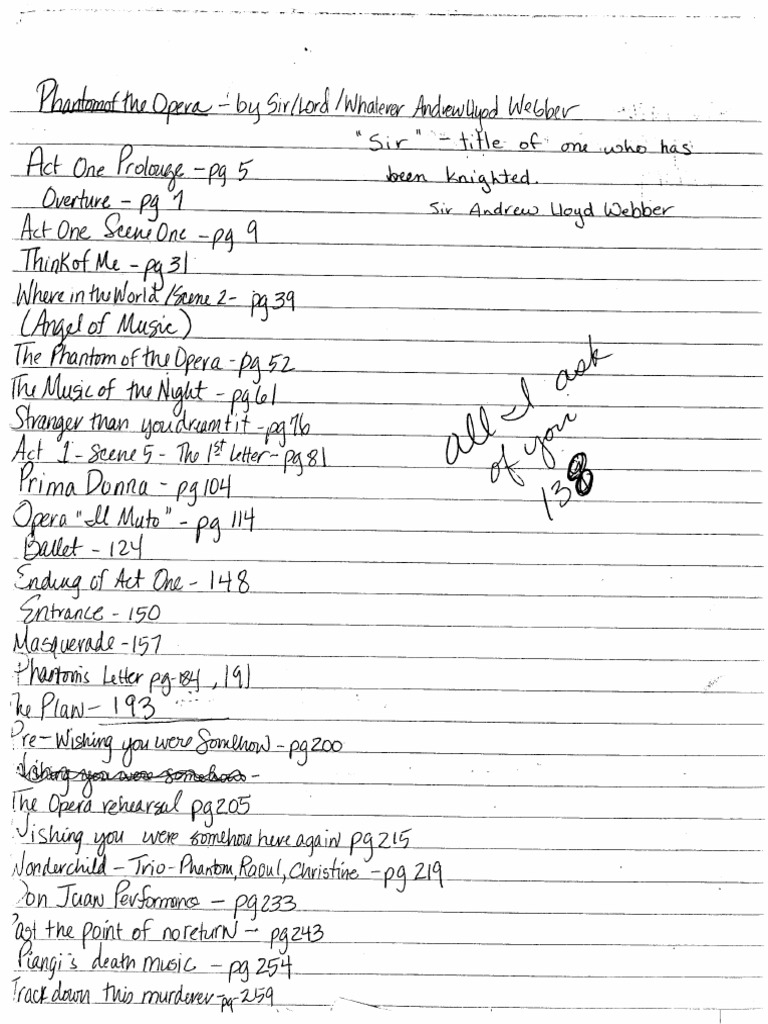 Phantom of the Opera - by Sir/Lord/Whatever Andrew Llyod Webber
"Sir" - title of one who has
been knighted.
Sir Andrew Lloyd Webber
Act One Prolouge - pg 5
Overture - pg 7
Act One Scene One - pg 9
Think of Me - pg 31
Where in the World/Scene 2 - pg 39
(Angel of Music)
The Phantom of the Opera - pg 52
The Music of the Night - pg 61
Stranger than you dreamt it - pg 76
Act 1 - Scene 5 - The 1st Letter - pg 81
Prima Donna - pg 104
Opera "Il Muto" - pg 114
Ballet - 124
all I ask
of you
138
Ending of Act One - 148
Entrance - 150
Masquerade - 157
Phantom's Letter pg 184, 191
The Plan - 193
Pre-Wishing you were Somehow - pg 200
Wishing you were somehow -
The Opera rehearsal pg 205
Wishing you were somehow here again pg 215
Wonderchild - Trio - Phantom, Raoul, Christine - pg 219
Don Juan Performance - pg 233
Past the point of no return - pg 243
Piangi's death music - pg 254
Track down this murderer - pg - 259